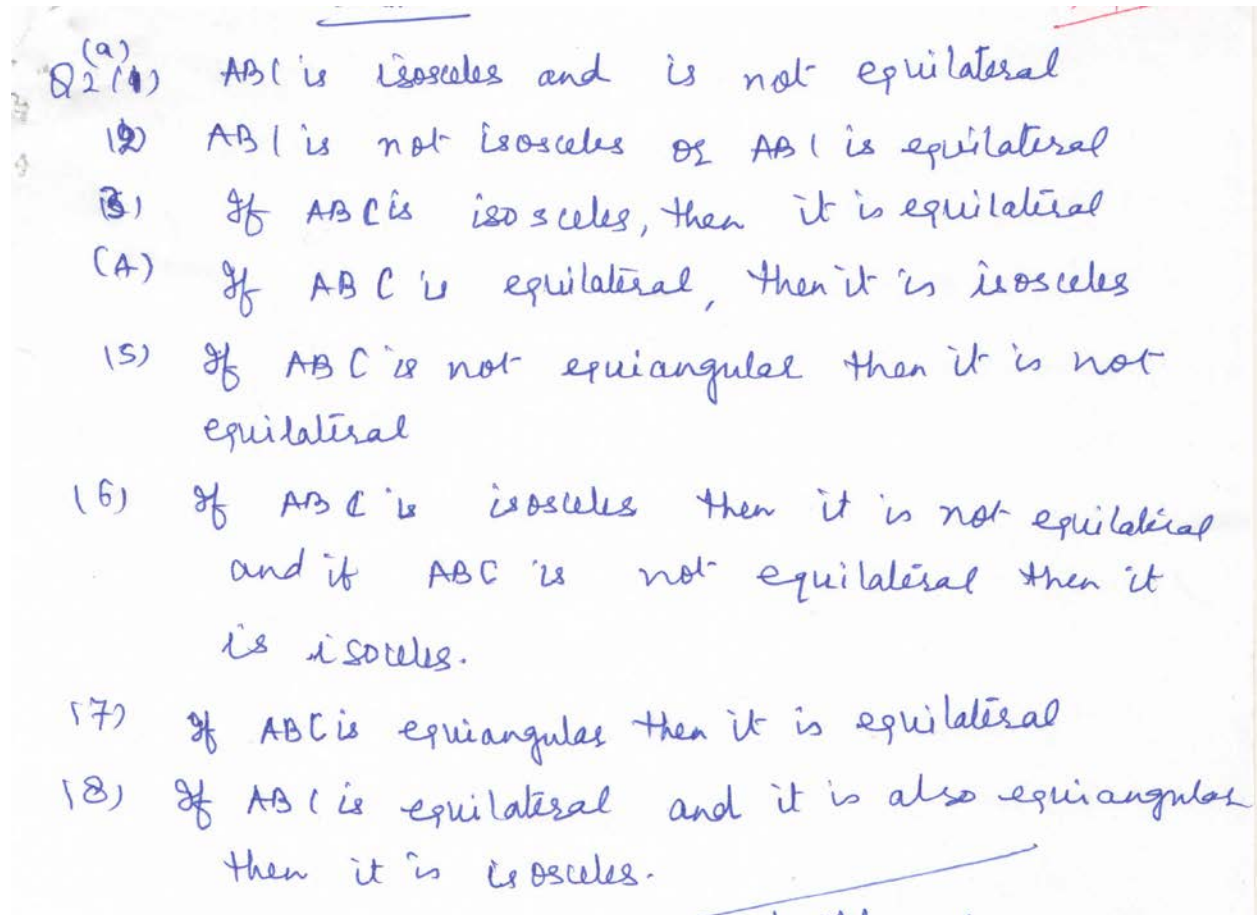 (a)
Q2(1) ABC is isosceles and is not equilateral
(2) ABC is not isosceles or ABC is equilateral
(3) If ABC is isosceles, then it is equilateral
(4) If ABC is equilateral, then it is isosceles
(5) If ABC is not equiangular then it is not
equilateral
(6) If ABC is isosceles then it is not equilateral
and if ABC is not equilateral then it
is isoceles.
(7) If ABC is equiangular then it is equilateral
(8) If ABC is equilateral and it is also equiangular
then it is isosceles.